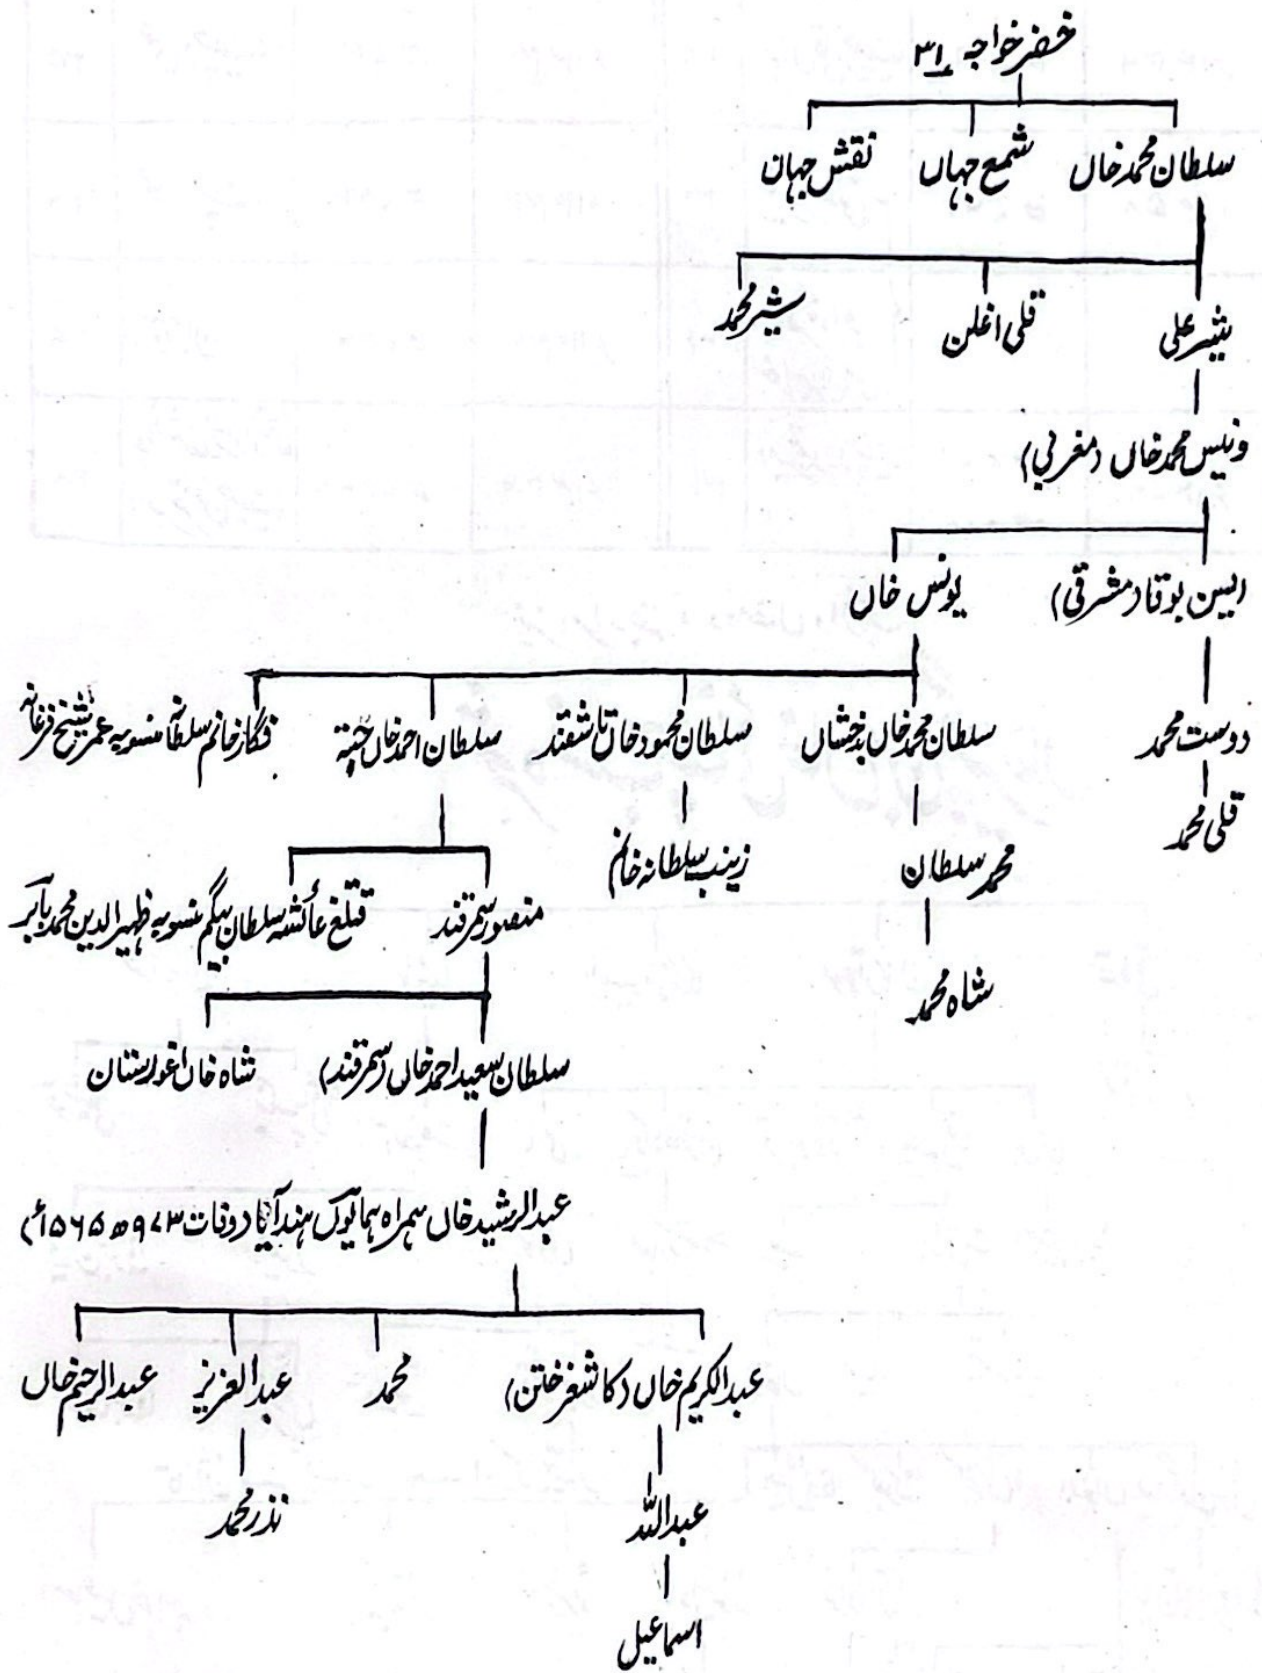 خضر خواجہ ۳۱
سلطان محمد خاں شمع جہاں نقش جہاں
شیر علی قلی اغلن شیر محمد
ونیس محمد خاں (مغربی)
ایسن بوقا (مشرقی) یونس خاں
دوست محمد سلطان محمد خاں بدخشاں سلطان محمود خاں تاشقند سلطان احمد خاں خانم سلطانہ منسوبہ عمر شیخ فرغانہ
قلی محمد محمد سلطان زینب سلطانہ خانم
منصور سمرقند قتلغ عائشہ سلطان بیگم منسوبہ ظہیر الدین محمد بابر
شاہ محمد
سلطان سعید احمد خاں (سمرقند) شاہ خاں اغورستان
عبدالرشید خاں ہمراہ ہمایوں ہند آیا (وفات ۹۷۳ھ ۱۵۶۵ء)
عبدالکریم خاں (کاشغر ختن) محمد عبدالعزیز عبدالرحیم خاں
عبداللہ نذر محمد
اسماعیل